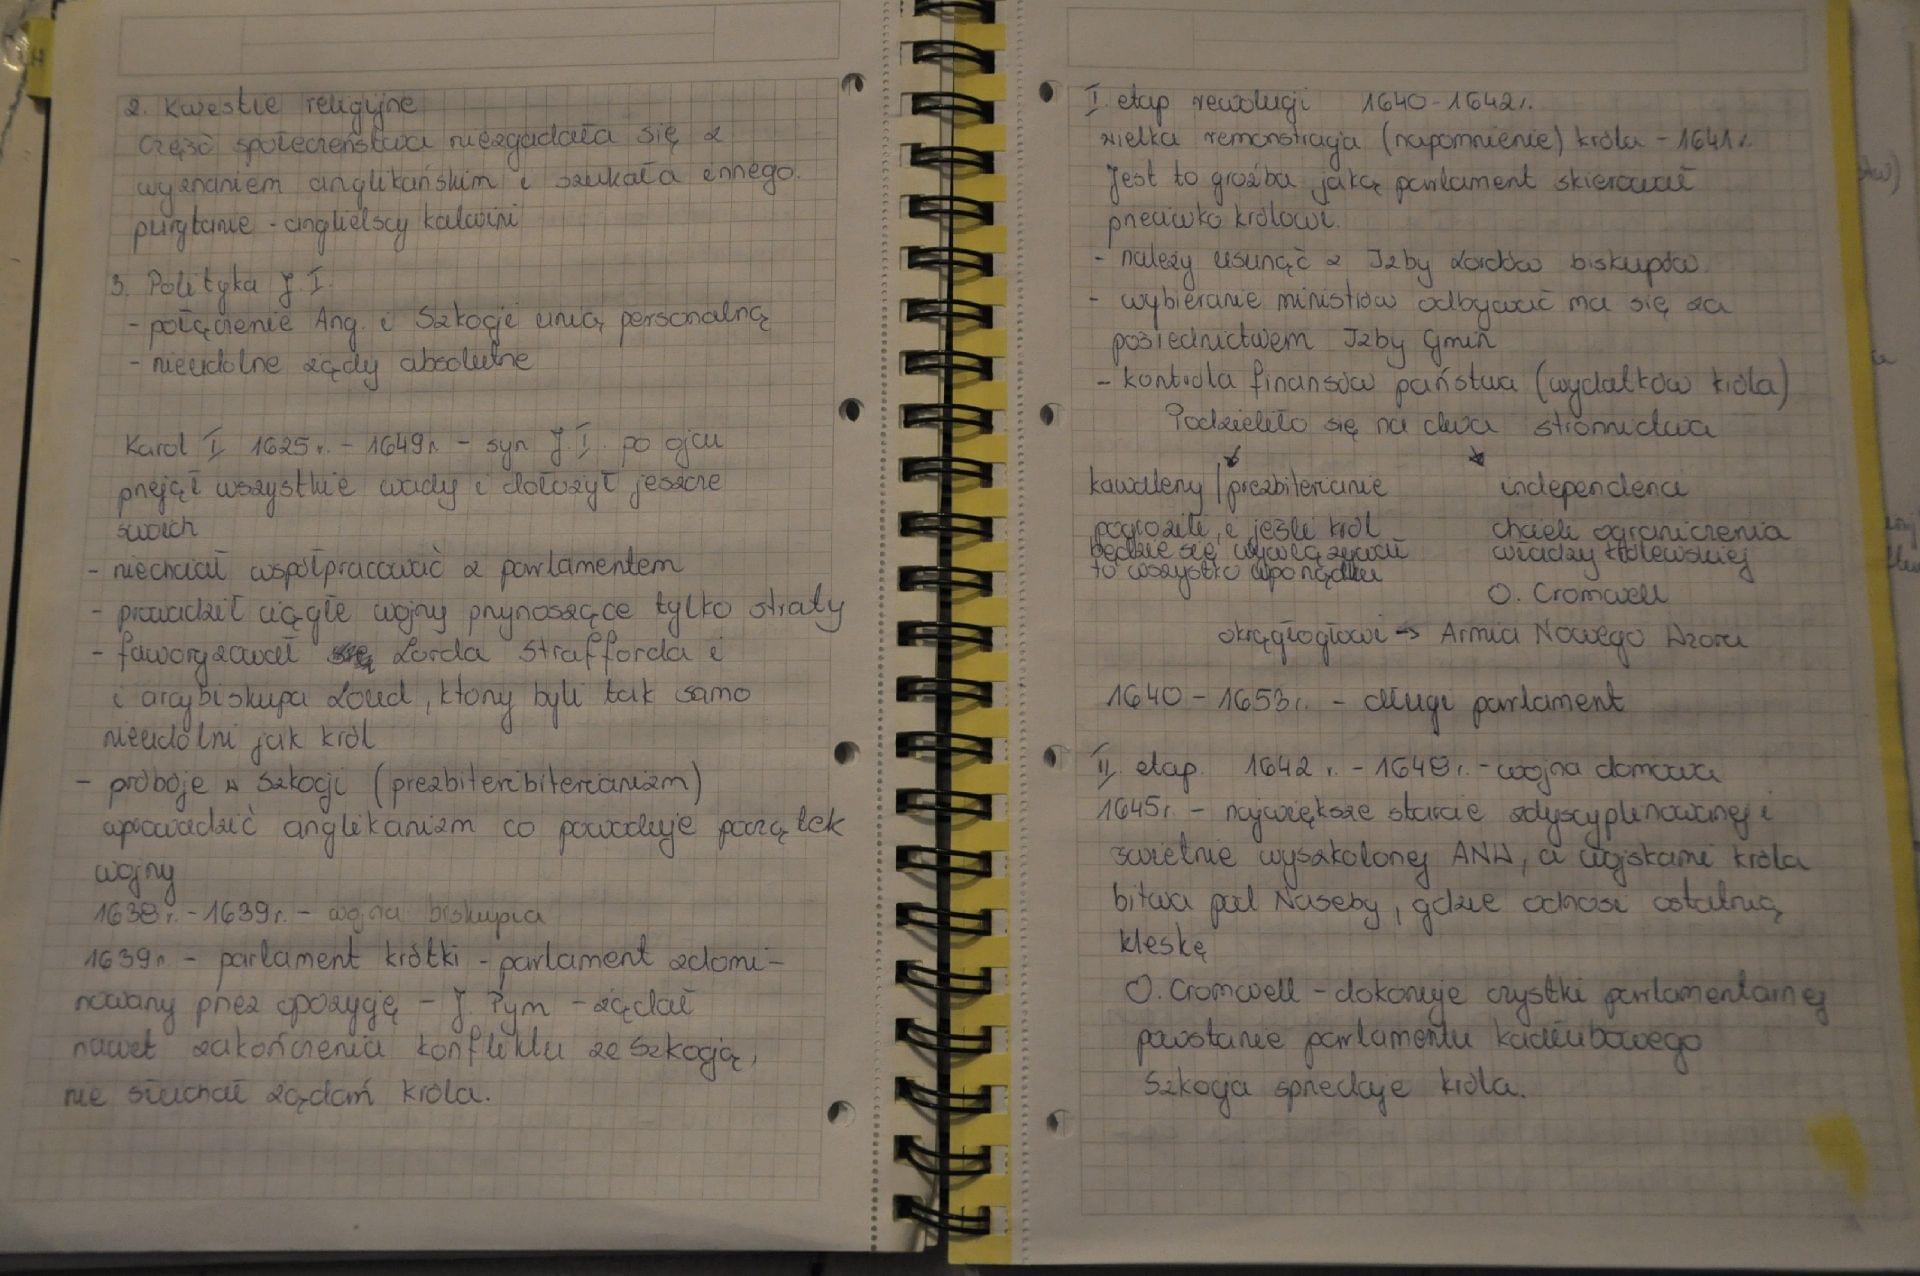 2. Kwestie religijne
Część społeczeństwa niezgadała się z
wyznaniem anglikańskim i szukała innego.
purytanie - angielscy kalwini
3. Polityka J. I.
- połączenie Ang. i Szkocji unią personalną
- nieudolne rządy absolutne
Karol I 1625 r. - 1649 r. - syn J. I. po ojcu
przejął wszystkie wady i dołożył jeszcze
swoich
- niechciał współpracować z parlamentem
- prowadził ciągłe wojny przynoszące tylko straty
- faworyzował Lorda Strafforda i
i arcybiskupa Loud, którzy byli tak samo
nieudolni jak król
- próbuje w Szkocji (prezbiteribiterianizm)
wprowadzić anglikanizm co powoduje początek
wojny
1638r. - 1639r. - wojna biskupia
1639r. - parlament krótki - parlament zdomi-
nowany przez opozycję - J. Pym - żądał
nawet zakończenia konfliktu ze Szkocją,
nie słuchał żądań króla.
I. etap rewolucji 1640 - 1642r.
wielka remonstracja (napomnienie) króla - 1641r.
Jest to groźba jaką parlament skierował
przeciwko królowi.
- należy usunąć z Izby Lordów biskupów
- wybieranie ministrów odbywać ma się za
pośrednictwem Izby Gmin
- kontrola finansów państwa (wydatków króla)
Podzieliło się na dwa stronnictwa
kawalerzy / prezbiterianie
independenci
pogrozili, i jeśli król
będzie się wywiązywał
to wszystko w porządku
chcieli ograniczenia
władzy królewskiej
O. Cromwell
okrągłogłowi → Armia Nowego Wzoru
1640 - 1653r. - długi parlament
II. etap. 1642 r. - 1648r. - wojna domowa
1645r. - największe starcie zdyscyplinowanej i
świetnie wyszkolonej ANW, a wojskami króla
bitwa pod Naseby, gdzie odnosi ostatnią
klęskę
O. Cromwell - dokonuje czystki parlamentarnej
powstanie parlamentu kadłubowego
Szkocja sprzedaje króla.